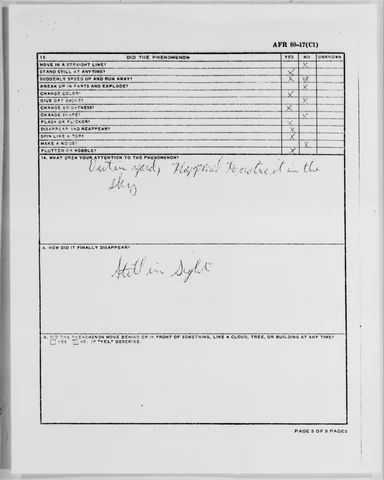 AFR 80-17(C1)
13. DID THE PHENOMENON YES NO UNKNOWN
MOVE IN A STRAIGHT LINE? X
STAND STILL AT ANYTIME? X
SUDDENLY SPEED UP AND RUN AWAY? X
BREAK UP IN PARTS AND EXPLODE? X
CHANGE COLOR? X
GIVE OFF SMOKE? X
CHANGE BRIGHTNESS? X
CHANGE SHAPE? X
FLASH OR FLICKER? X
DISAPPEAR AND REAPPEAR? X
SPIN LIKE A TOP? X
MAKE A NOISE? X
FLUTTER OR WOBBLE? X
14. WHAT DREW YOUR ATTENTION TO THE PHENOMENON?
Out in yard, Happened to notice it in the
sky
A. HOW DID IT FINALLY DISAPPEAR?
Still in Sight
B. DID THE PHENOMENON MOVE BEHIND OR IN FRONT OF SOMETHING, LIKE A CLOUD, TREE, OR BUILDING AT ANY TIME?
YES NO. IF "YES," DESCRIBE.
PAGE 5 OF 9 PAGES